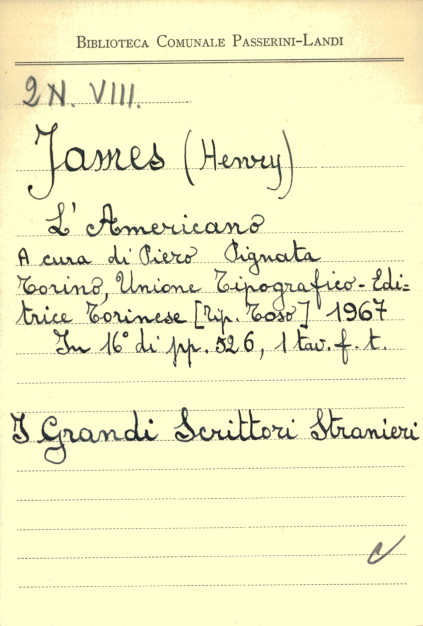 BIBLIOTECA COMUNALE PASSERINI-LANDI
2 N. VIII.
James (Henry)
L'Americano
A cura di Piero Pignata
Torino, Unione Tipografico-Edi=
trice Torinese [Tip. Toso] 1967
In 16° di pp. 526, 1 tav. f. t.
I Grandi Scrittori Stranieri